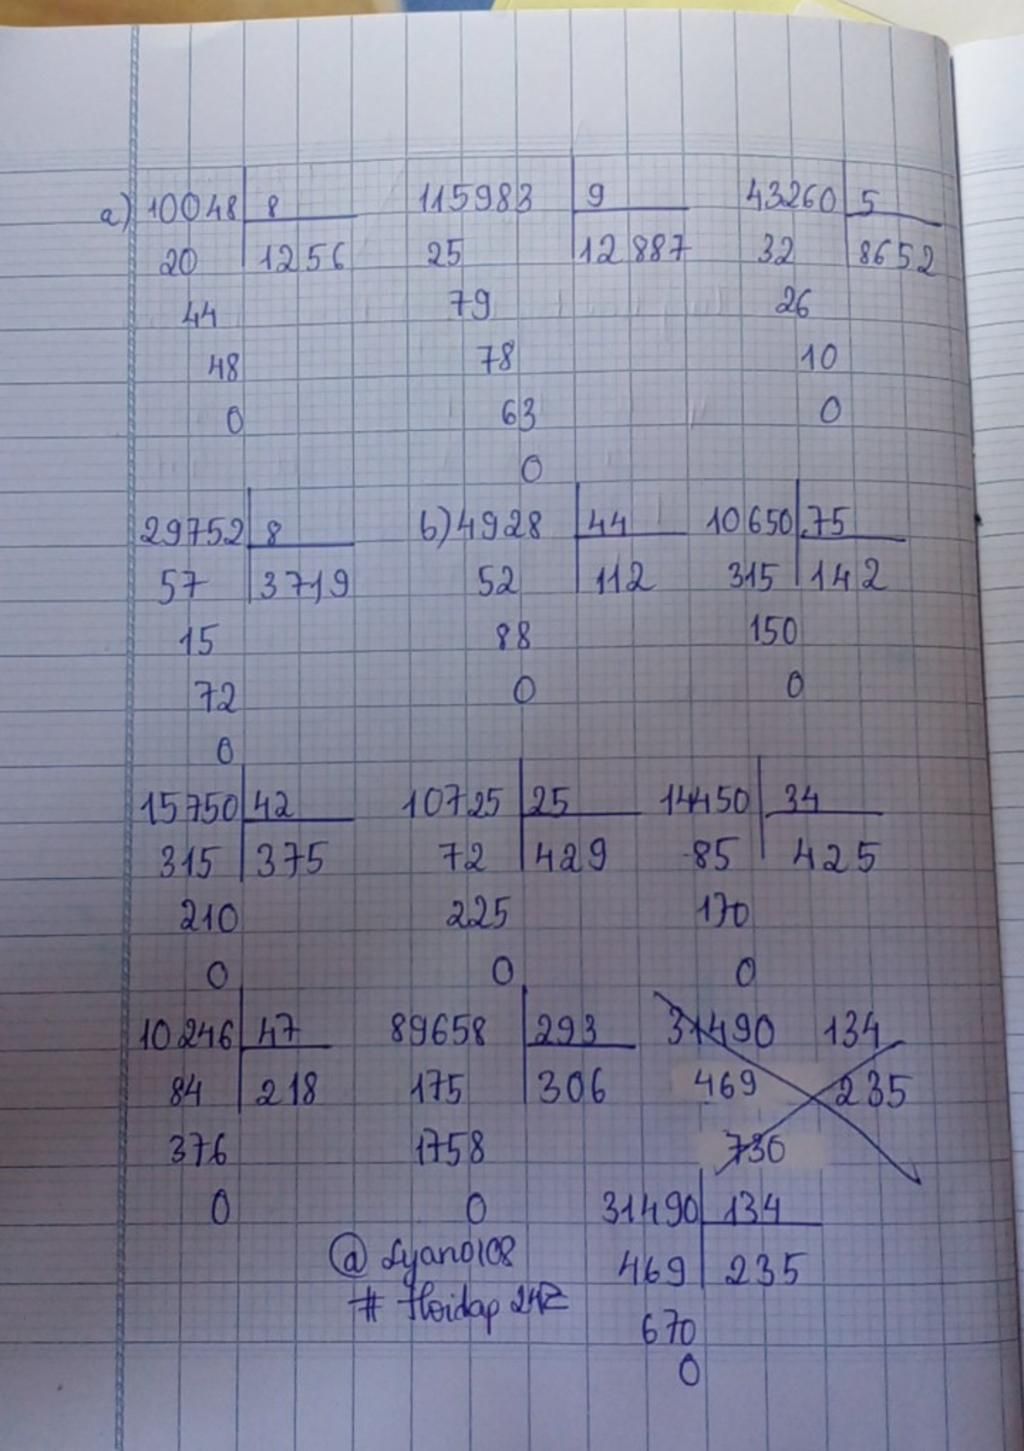 a) 10048 8 115983 9 43260 5
20 1256 25 12887 32 8652
44 79 26
48 78 10
0 63 0
0
29752 8 b) 4928 44 10650 75
57 3719 52 112 315 142
15 88 150
72 0 0
0
15750 42 10725 25 14450 34
315 375 72 429 85 425
210 225 170
0 0 0
10246 47 89658 293 31490 134
84 218 175 306 469 235
376 1758 730
0 0 31490 134
@ Lyano108 469 235
# Hoidap 247 670
0